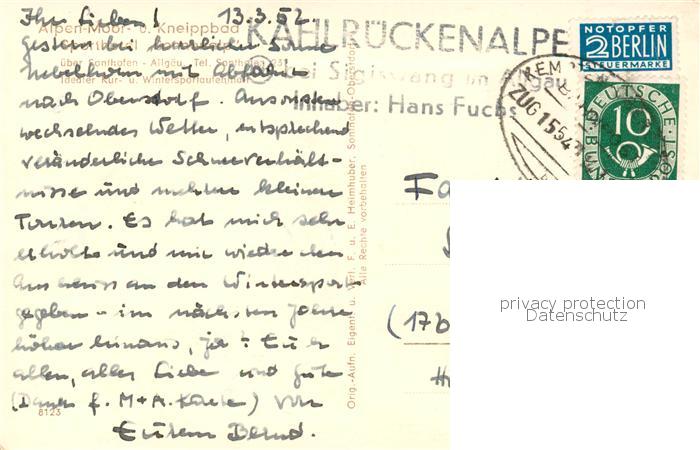 Ihr Lieben! 13.3.52
Gestern bei herrlicher Sonne
Nebelhorn mit Abfahrt
nach Oberstdorf. Ansonsten
wechselndes Wetter, entsprechend
veränderliche Schneeverhält-
nisse und mehrere kleinere
Touren. Es hat mich sehr
erholt und mir wieder den
Anschluss an den Wintersport
gegeben - im nächsten Jahre
höher hinaus, ja? Euch
allen, alles Liebe und Gute
(Dank f. M+A. Karte) von
Eurem Bernd.
Alpen-Moor- u. Kneippbad
über Sonthofen - Allgäu - Tel. Sonthofen
idealer Kur- u. Wintersportaufenthalt
8123
KAHLRÜCKENALPE
bei Sigiswang im Allgäu
Inhaber: Hans Fuchs
Orig.-Aufn. Eigent. u. Verl. F. u. E. Heimhuber, Sonthofen-Oberstdorf
Alle Rechte vorbehalten
NOTOPFER
2 BERLIN
STEUERMARKE
DEUTSCHE
BUNDESPOST
10
ZUG 1554
Fa
(17b
privacy protection
Datenschutz